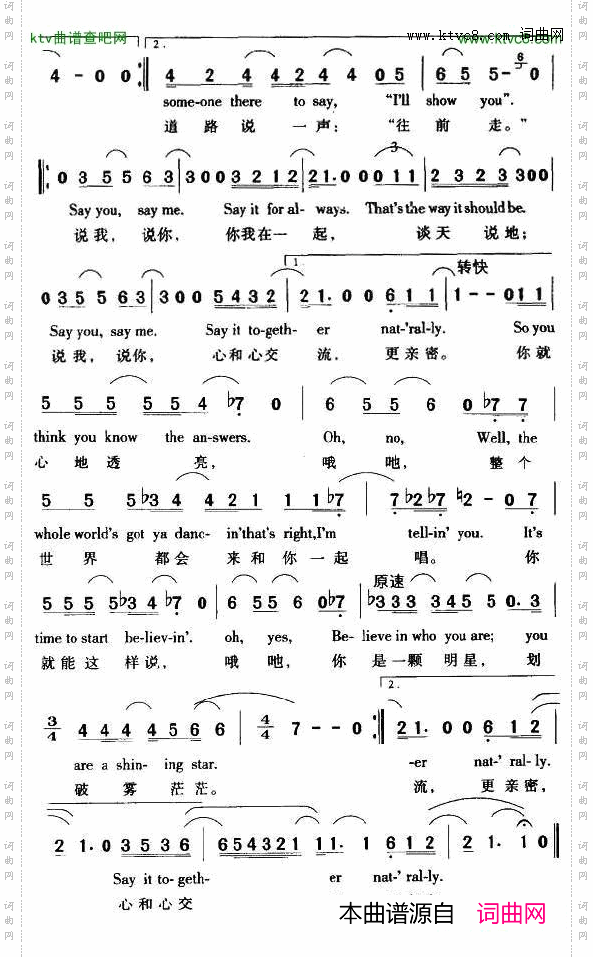 ktv曲谱查吧网 www.ktvc8.com 词曲网
2.
4 - 0 0 :‖ 4 2 4 4 2 4 4 0 5 | 6 5 5 - 0
some-one there to say, "I'll show you".
道 路 说 一 声: "往 前 走。"
‖: 0 3 5 5 6 3 | 3 0 0 3 2 1 2 | 2 1· 0 0 0 1 1 | 2 3 2 3 3 0 0 |
Say you, say me. Say it for al- ways. That's the way it should be.
说 我, 说 你, 你 我 在 一 起, 谈 天 说 地;
1. 转快
0 3 5 5 6 3 | 3 0 0 5 4 3 2 | 2 1· 0 0 6 1 1 | 1 - - 0 1 1
Say you, say me. Say it to-geth- er nat-'ral-ly. So you
说 我, 说 你, 心 和 心 交 流, 更 亲 密。 你 就
5 5 5 5 5 4 ♭7 0 | 6 5 5 6 0 ♭7 7 |
think you know the an-swers. Oh, no, Well, the
心 地 透 亮, 哦 吔, 整 个
5 5 5 ♭3 4 4 2 1 1 1 ♭7 | 7 ♭2 ♭7 ♮2 - 0 7 |
whole world's got ya danc- in'that's right,I'm tell-in' you. It's
世 界 都 会 来 和 你 一 起 唱。 你
原速
5 5 5 5 ♭3 4 ♭7 0 | 6 5 5 6 0 ♭7 | ♭3 3 3 3 4 5 5 0· 3 |
time to start be-liev-in'. oh, yes, Be- lieve in who you are; you
就 能 这 样 说, 哦 吔, 你 是 一 颗 明 星, 划
2.
3/4 4 4 4 4 5 6 6 | 4/4 7 - - 0 :‖ 2 1· 0 0 6 1 2 |
are a shin- ing star. -er nat-' ral-ly.
破 雾 茫 茫。 流, 更 亲 密,
2 1· 0 3 5 3 6 | 6 5 4 3 2 1 1 1· 1 6 1 2 | 2 1· 1 0 ‖
Say it to-geth- er nat-' ral-ly.
心 和 心 交
本曲谱源自 词曲网